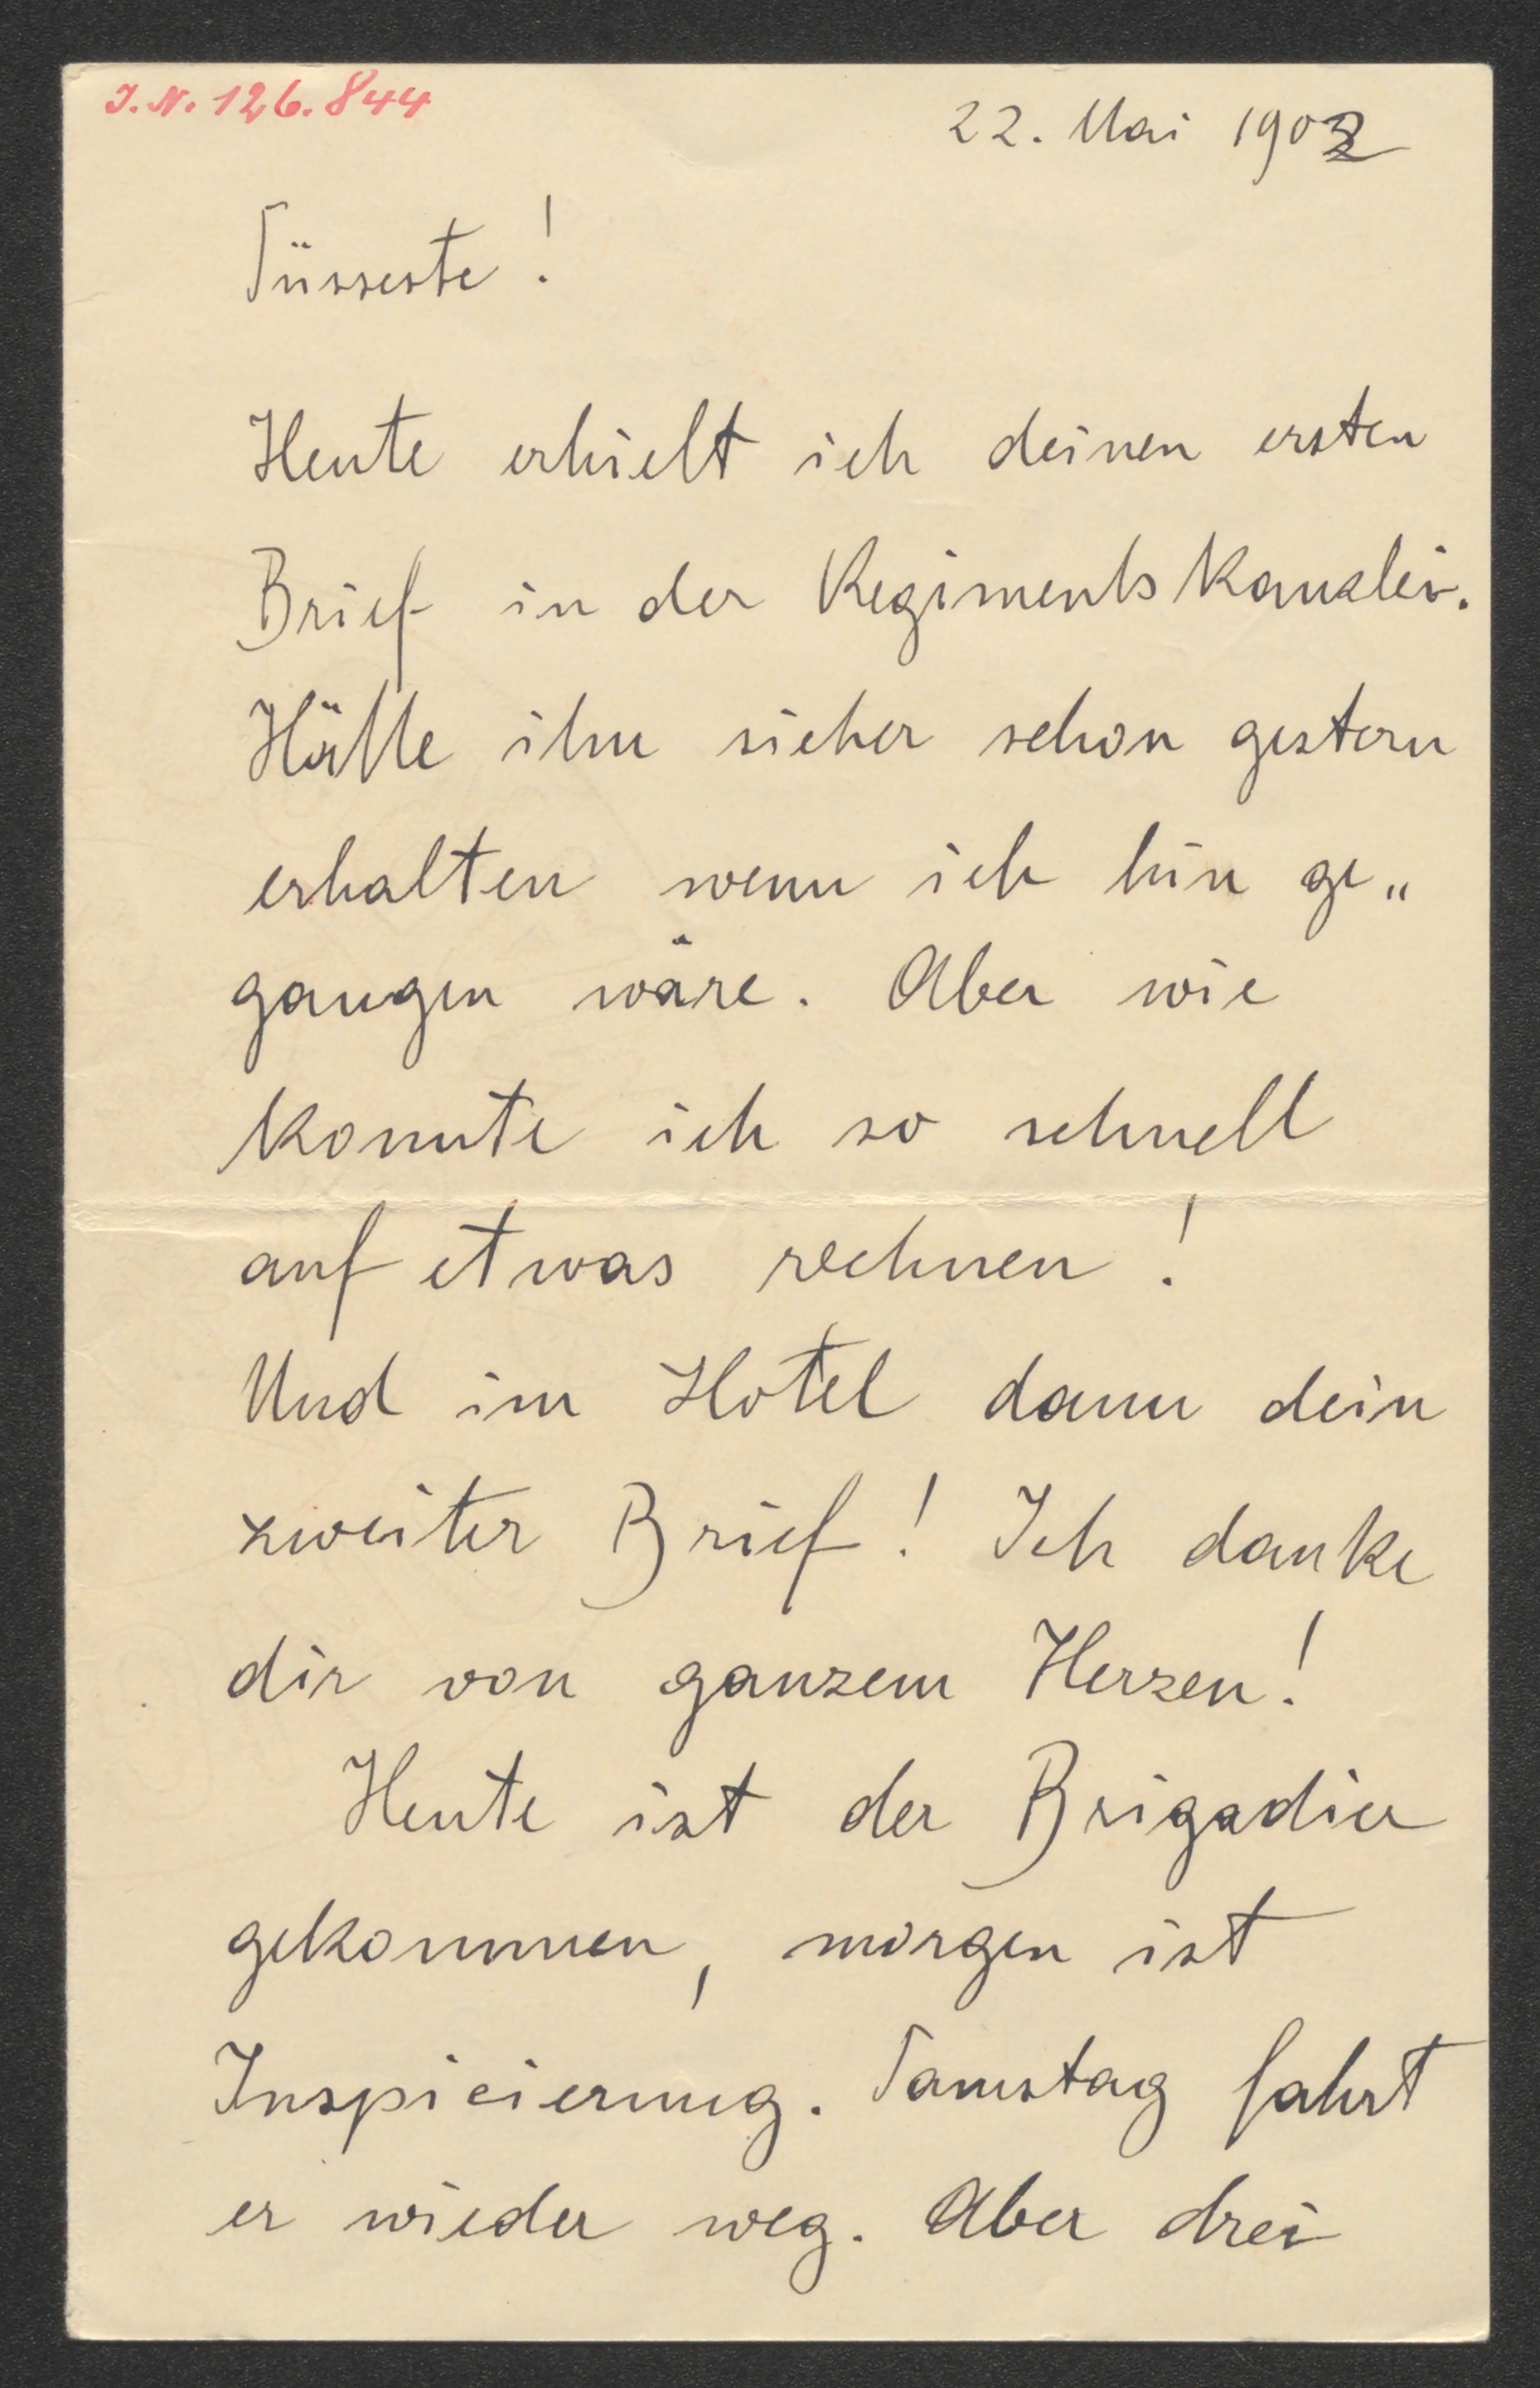 J.N. 126.844
22. Mai 1902
Süsseste!
Heute erhielt ich deinen ersten
Brief in der Regimentskanzlei.
Hätte ihn sicher schon gestern
erhalten wenn ich hin ge„
gangen wäre. Aber wie
konnte ich so schnell
auf etwas rechnen!
Und im Hotel dann dein
zweiter Brief! Ich danke
dir von ganzem Herzen!
Heute ist der Brigadier
gekommen, morgen ist
Inspicierung. Samstag fahrt
er wieder weg. Aber drei